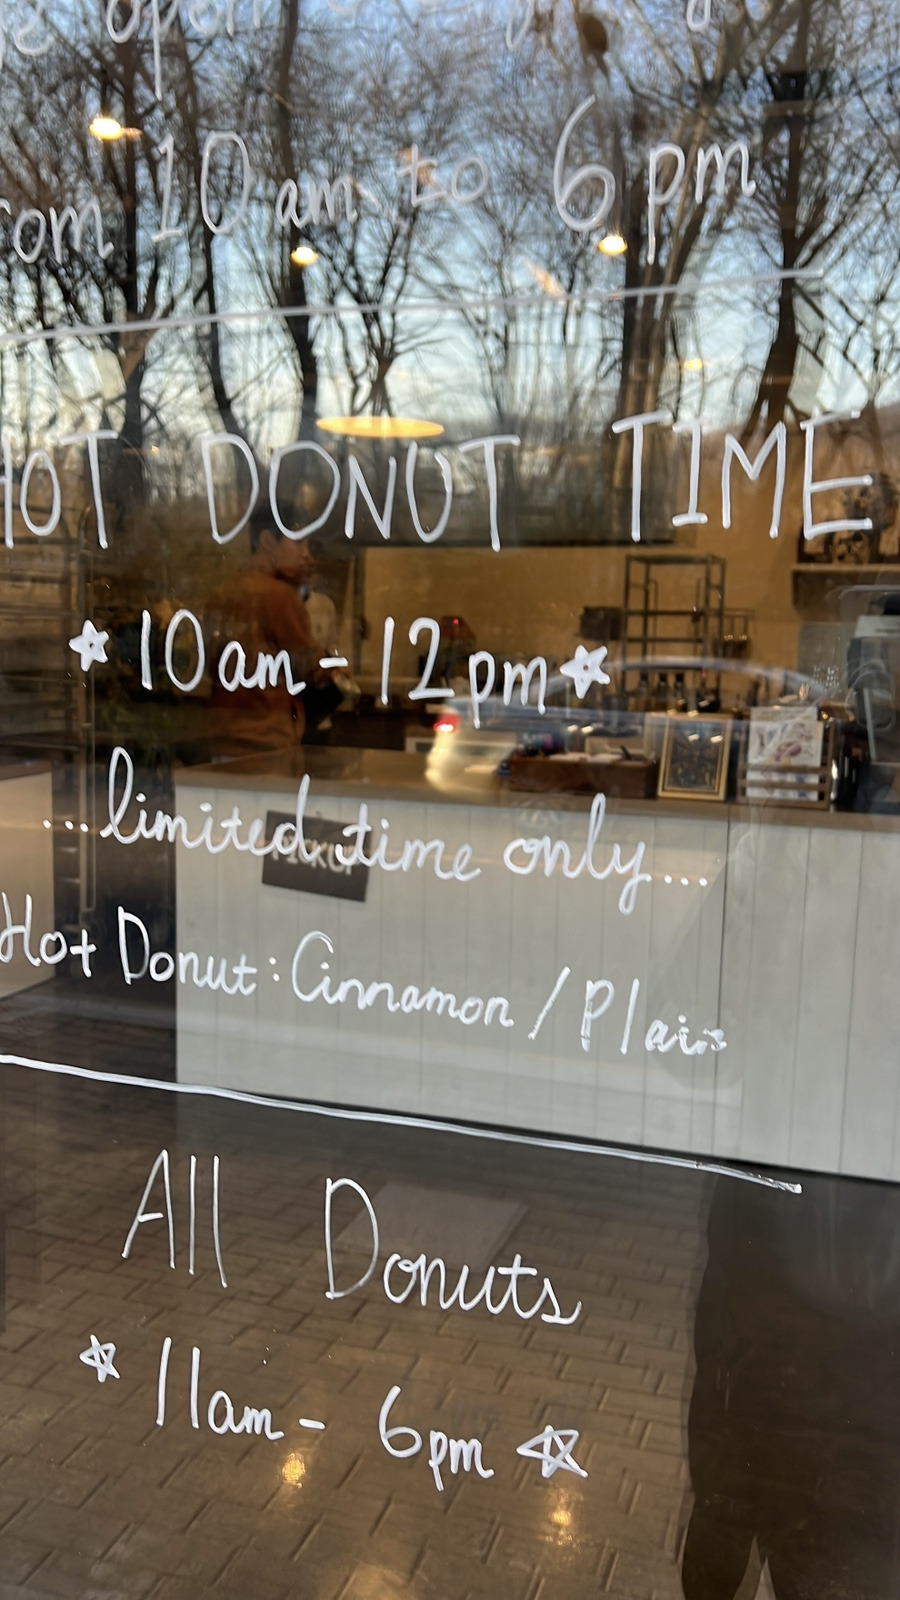 open
from 10am to 6pm
HOT DONUT TIME
10am - 12pm
...limited time only...
PICKUP
Hot Donut : Cinnamon / Plain
All Donuts
11am - 6pm